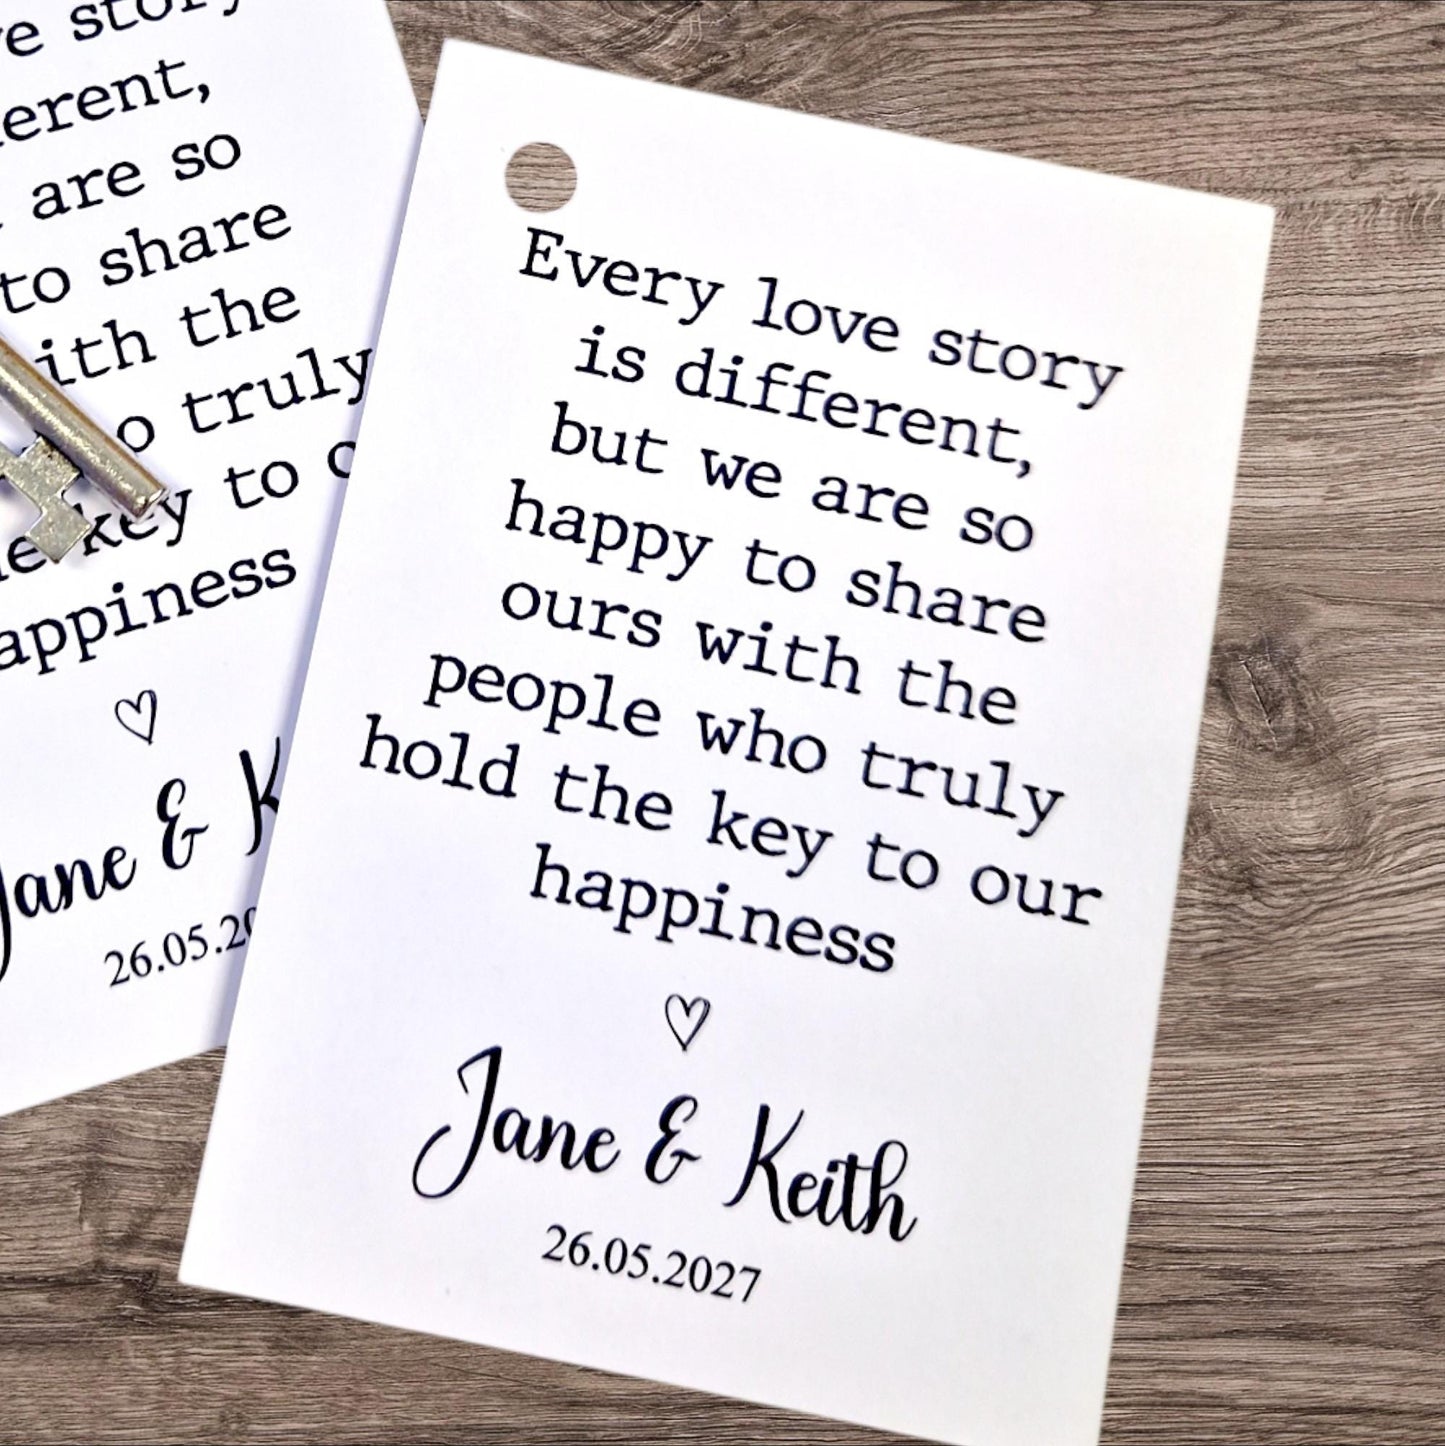 e story
erent,
are so
to share
ith the
o truly
key to
appiness
Jane & K
26.05.20
Every love story
is different,
but we are so
happy to share
ours with the
people who truly
hold the key to our
happiness
Jane & Keith
26.05.2027